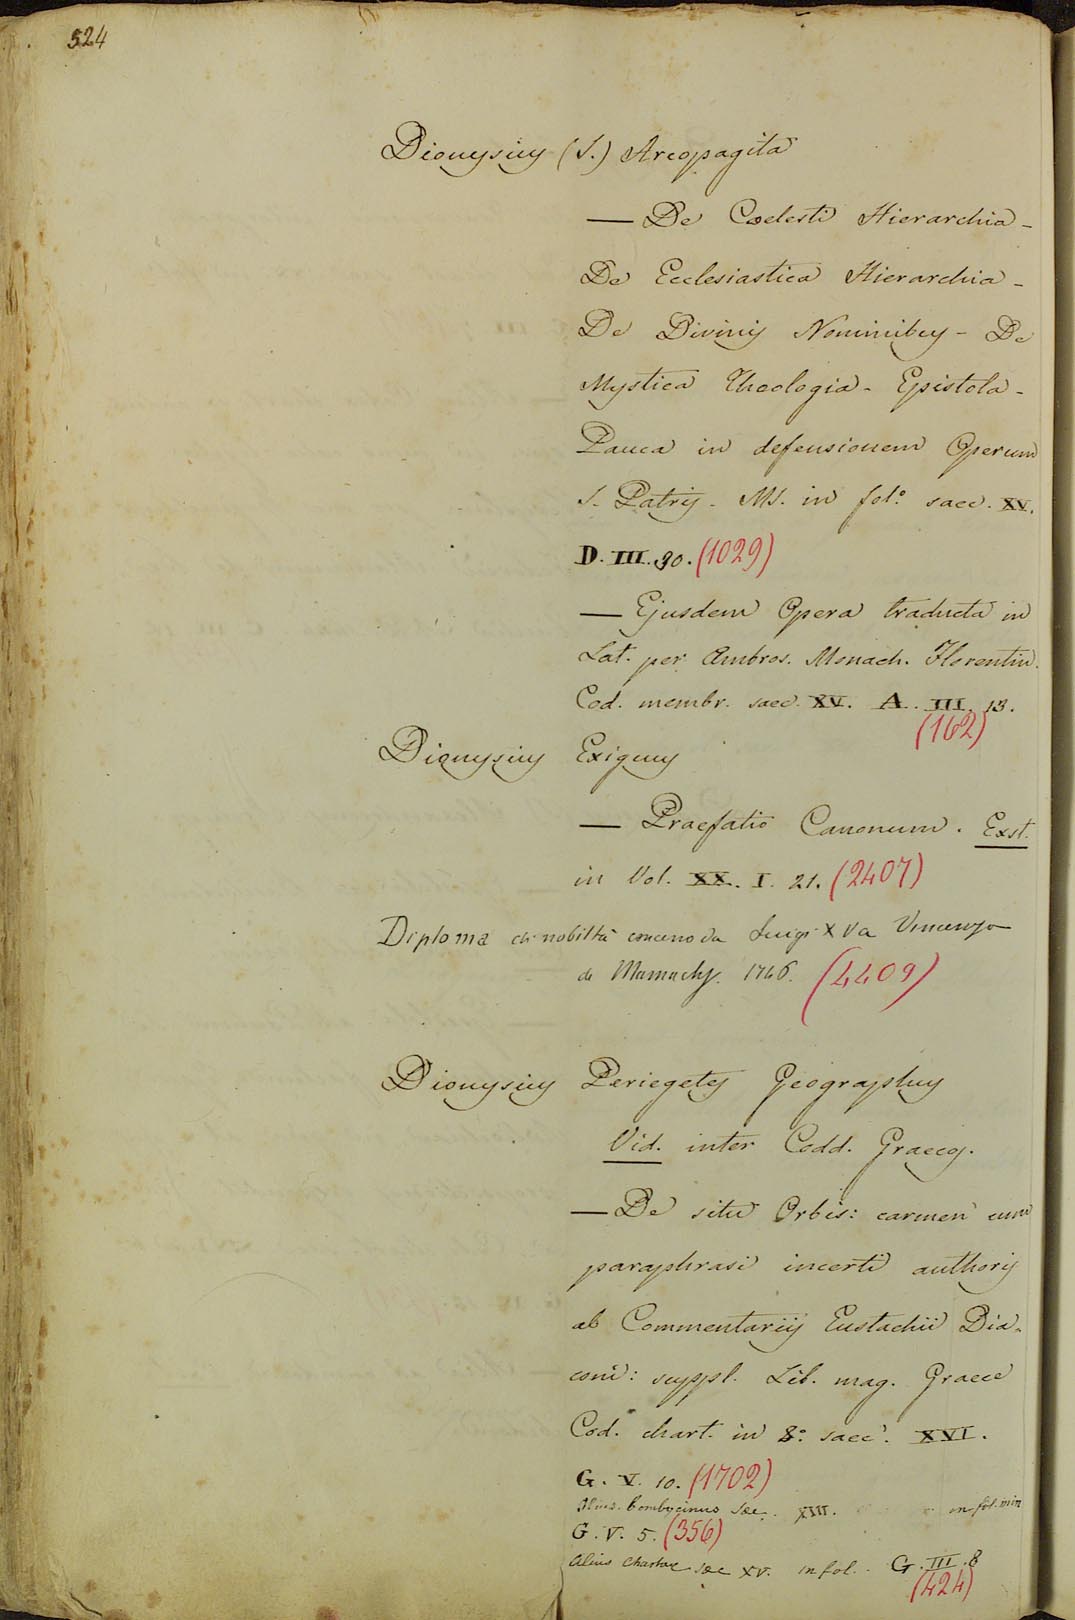 524
Dionysius (S.) Areopagita
— De Coelesti Hierarchia -
De Ecclesiastica Hierarchia -
De Divinis Nominibus - De
Mystica Theologia - Epistola -
Pauca in defensionem Operum
S. Patris - MS. in fol.º saec. XV.
D. III. 30. (1029)
— Ejusdem Opera traducta in
Lat. per Ambros. Monach. Florentin.
Cod. membr. saec. XV. A. III. 13.
(162)
Dionysius Exiguus
— Praefatio Canonum. Exst.
in Vol. XX. I. 21. (2407)
Diploma di nobiltà concesso da Luigi XV a Vincenzo
de Mamachy. 1746. (4409)
Dionysius Periegetes Geographus
Vid. inter Codd. Graecos.
— De situ Orbis: carmen cum
paraphrasi incerti authoris
ab Commentariis Eustachii Dia-
coni: suppl. Lib. mag. Graece
Cod. chart. in 8º saec. XVI.
G. V. 10. (1702)
Alius bombycinus sec. XIII. in fol. min
G. V. 5. (356)
Alius chartac sec XV. in fol. G. III. 8
(424)